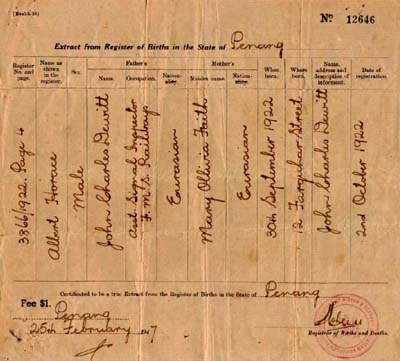 [Health 38]
No 12646
Extract from Register of Births in the State of Penang
Register No. and page.
Name as shown in the register.
Sex.
Father's
Name.
Occupation.
Nationality.
Mother's
Maiden name.
Nationality.
When born.
Where born.
Name, address and description of informant.
Date of registration.
3866/1922. Page 4
Albert Horace
Male
John Charles Dewitt
Asst. Signal Inspector
F.M.S. Railways
Eurasian
Mary Olivia Faith
Eurasian
30th September 1922
12 Farquhar Street
John Charles Dewitt
2nd October 1922
Certificated to be a true Extract from the Register of Births in the State of Penang
Fee $1.
Penang
25th February 1947
Registrar of Births and Deaths.